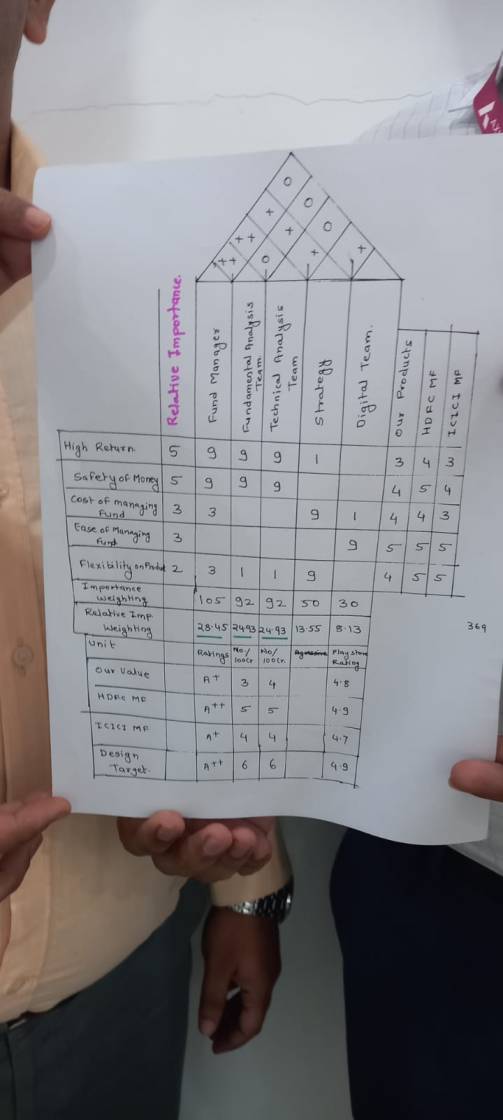 O
+ O
+ + O
++ O + +
Relative Importance.
Fund Manager
Fundamental Analysis Team
Technical Analysis Team
Strategy
Digital Team.
Our Products
HDFC MF
ICICI MF
High Return 5 9 9 9 1 3 4 3
Safety of Money 5 9 9 9 4 5 4
Cost of managing Fund 3 3 9 1 4 4 3
Ease of Managing Fund 3 9 5 5 5
Flexibility on Product 2 3 1 1 9 4 5 5
Importance Weighting 105 92 92 50 30
Relative Imp Weighting 28.45 24.93 24.93 13.55 8.13
369
Unit Ratings No/100Cr No/100Cr. Play store Rating
Our Value A+ 3 4 4.8
HDFC MF A++ 5 5 4.9
ICICI MF A+ 4 4 4.7
Design Target. A++ 6 6 4.9